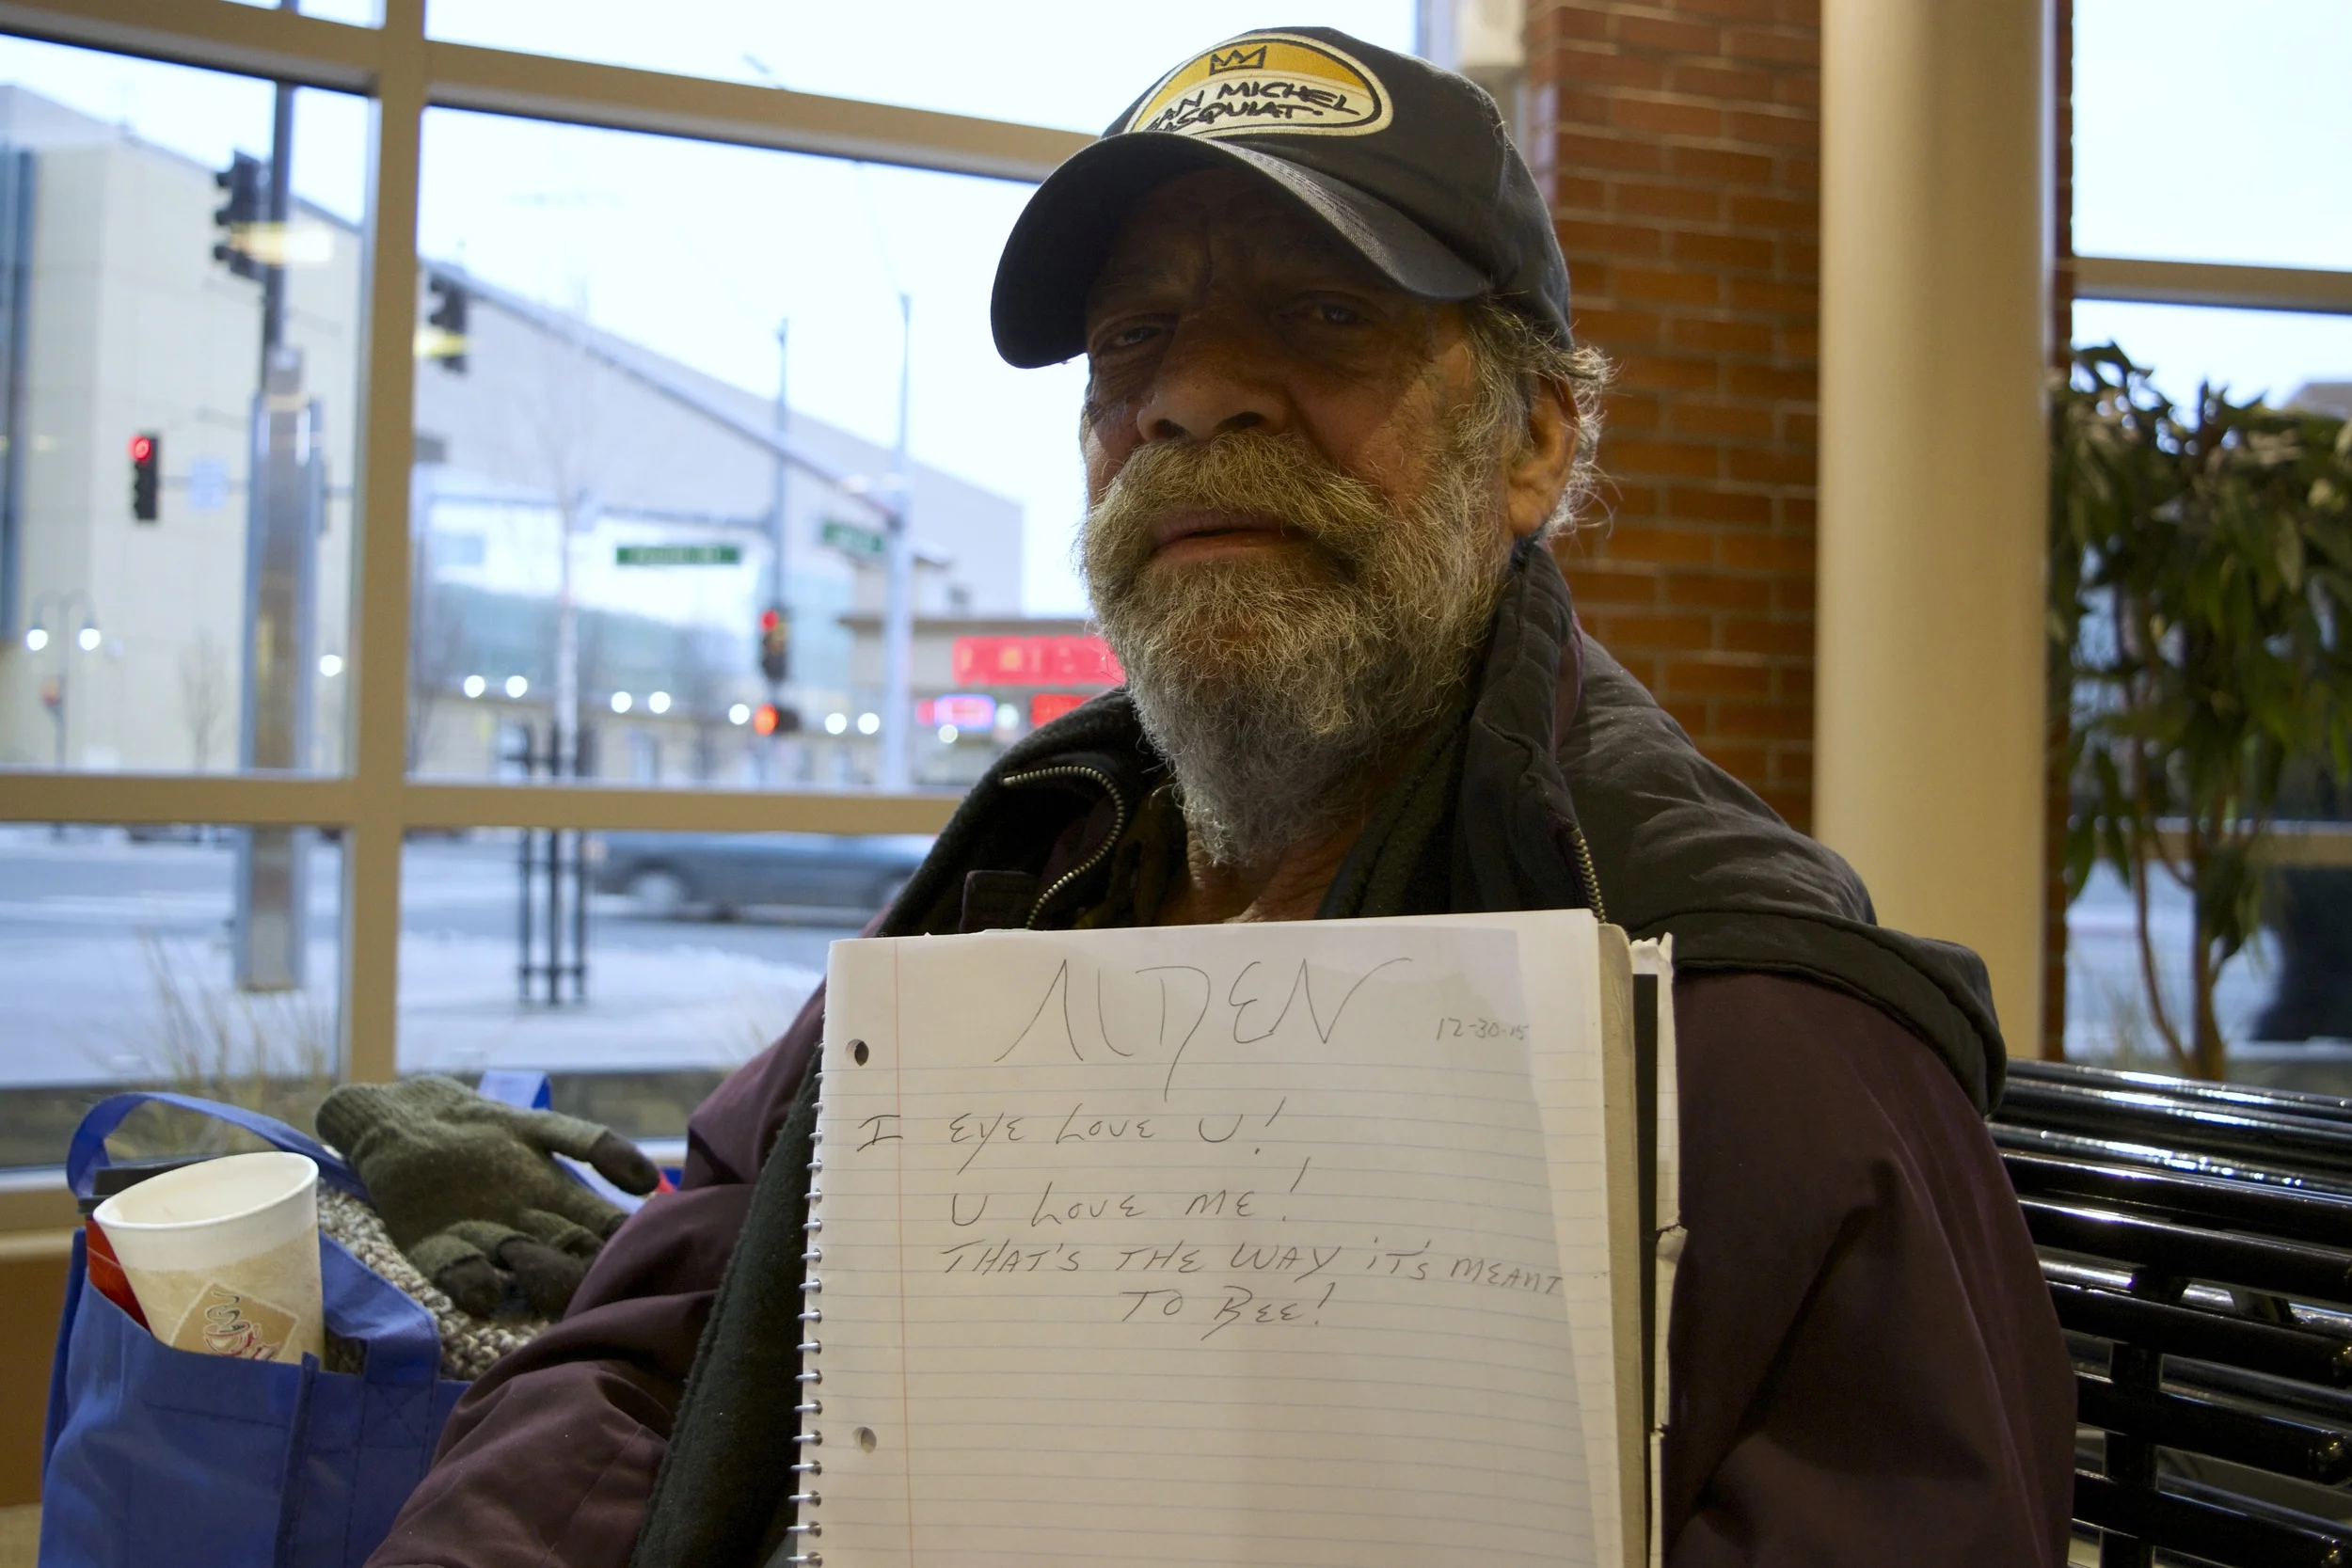 AN MICHEL
ASQUIAT.
ALDEN
12-30-15
I EYE LOVE U!
U LOVE ME!
THAT'S THE WAY IT'S MEANT
TO BEE!